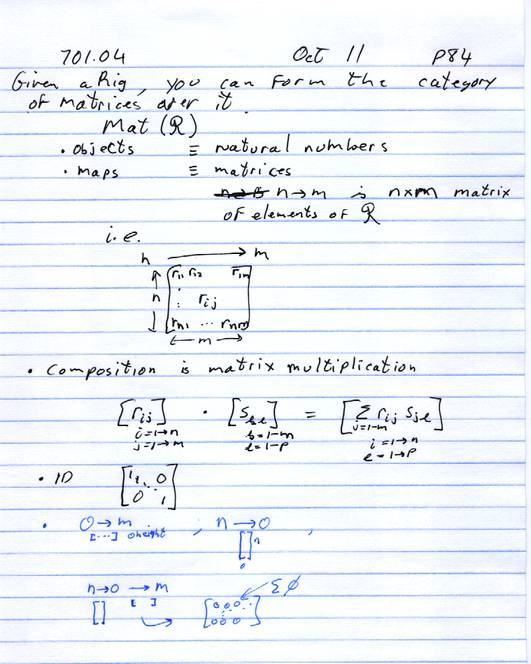 701.04 Oct 11 P84
Given a Rig, you can form the category
of matrices over it.
Mat (R)
• objects ≡ natural numbers
• maps ≡ matrices
n→m is n×m matrix
of elements of R
i.e.
n → m
r11 r12 r1m
n : rij
rn1 ... rnm
← m →
• Composition is matrix multiplication
[rij] · [skl] = [Σ rij sjl]
i=1→n k=1→m j=1→m
j=1→m l=1→p i=1→n
l=1→p
• ID [1 1 ⋱ 0
0 1]
• 0→m , n→0 ,
[...] 0 height [] n
0
n→0 → m Σ∅
[] [ ] [0 0 0
0 0 0]